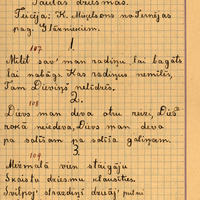 Tautas dziesmas.
Teicēja: K. Miķelsons no Ternējas
pag. Stārmuižam.
1
107
Mīlēt sav' man radiņu lai bagāts
lai nabags. Kas radiņus nemīlēs,
Tam Dieviņš nelīdzēs.
2.
108
Dievs man deva otru reizi, Dievs
rokā neiedeva, Dievs man deva
pa soļam pa soļa galiņam.
3.
109
Mežmalā vien staigāju
Skaistu dziesmu klausīties.
Svilpoj' strazdiņš dziedāj' putni